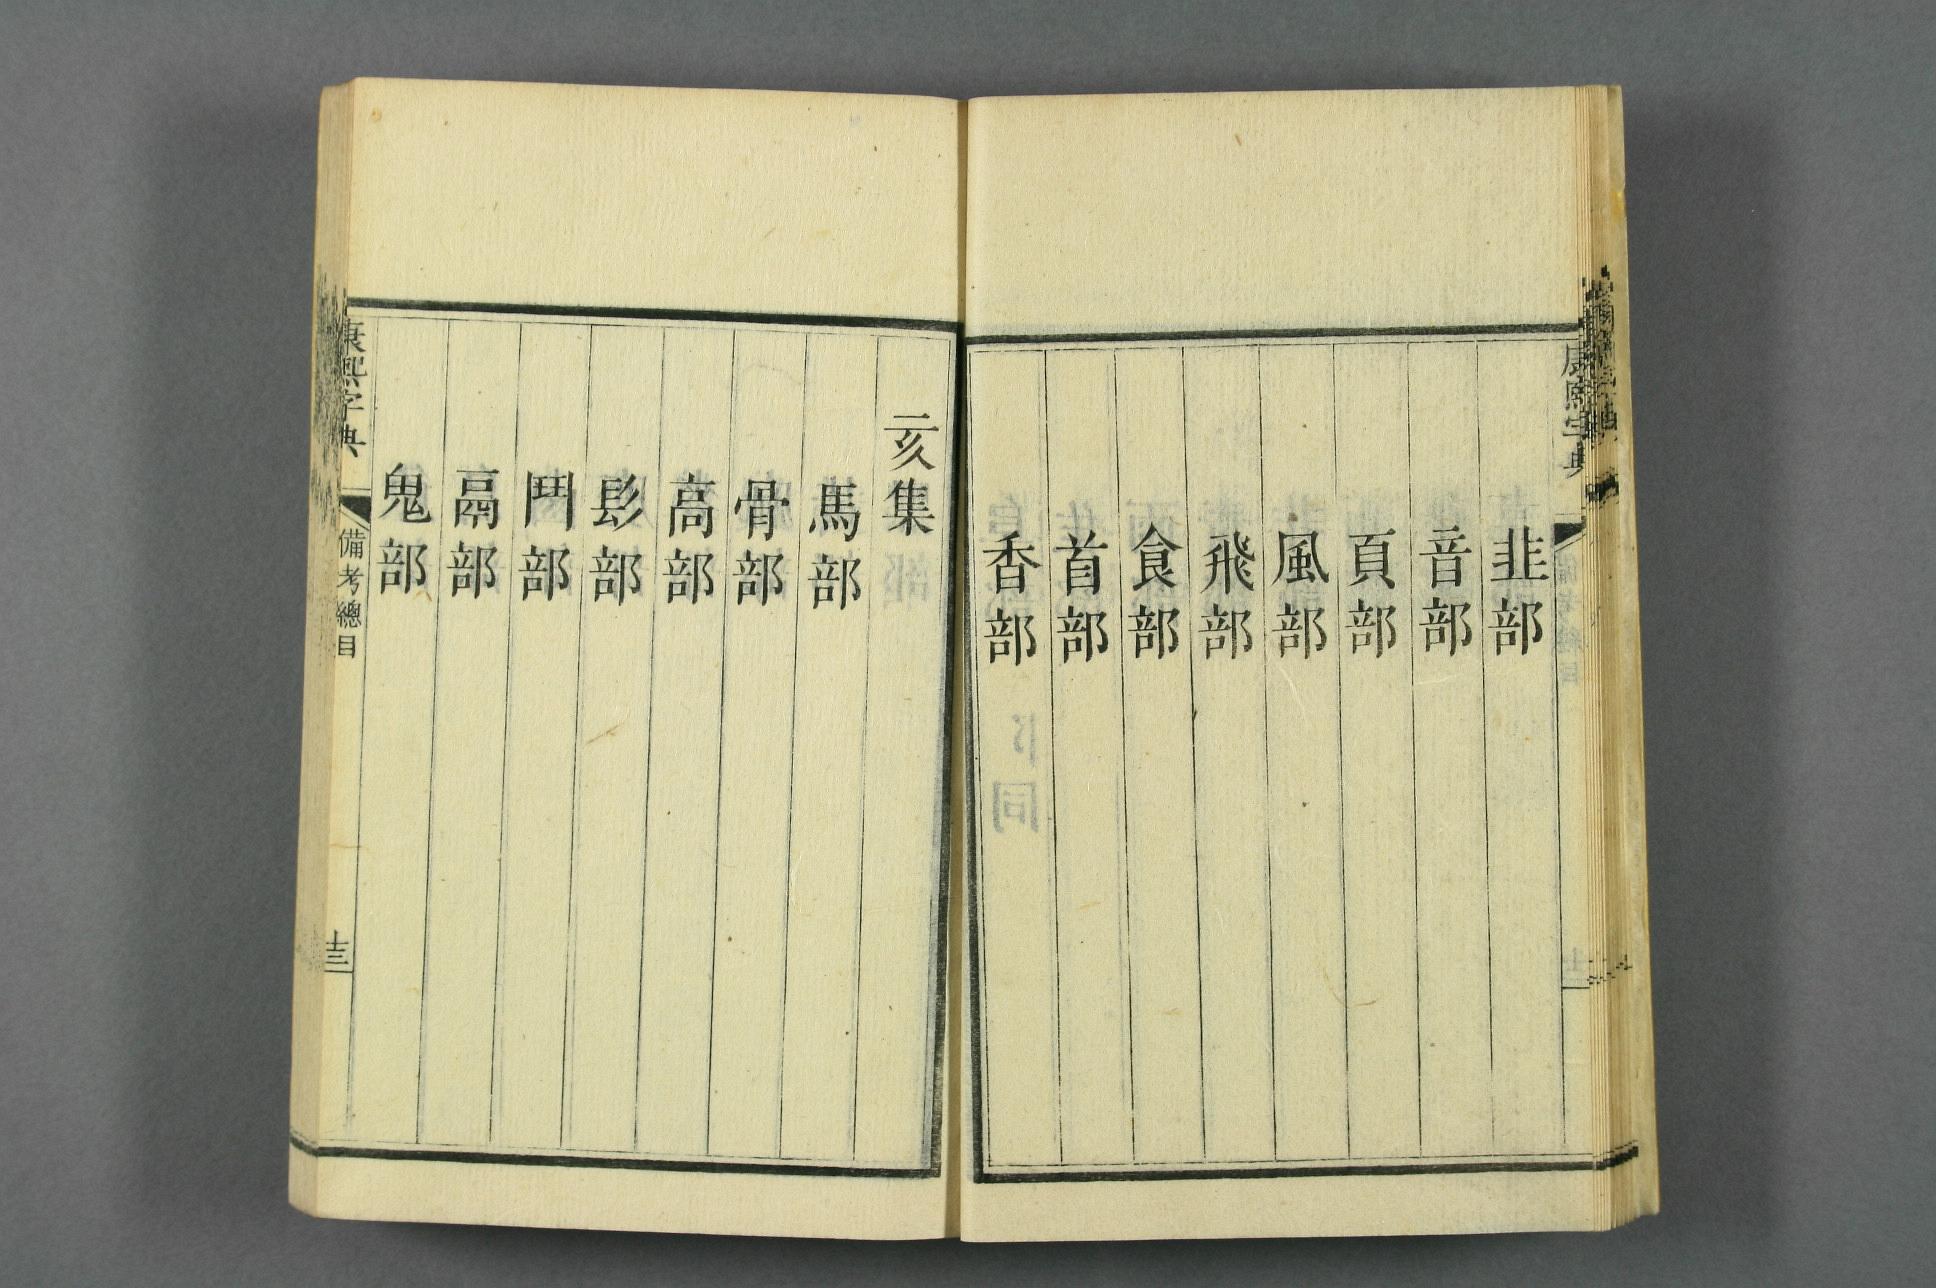 康熙字典
韭部
音部
頁部
風部
飛部
食部
首部
香部
亥集
馬部
骨部
高部
髟部
鬥部
鬲部
鬼部
康熙字典
備考總目
十三